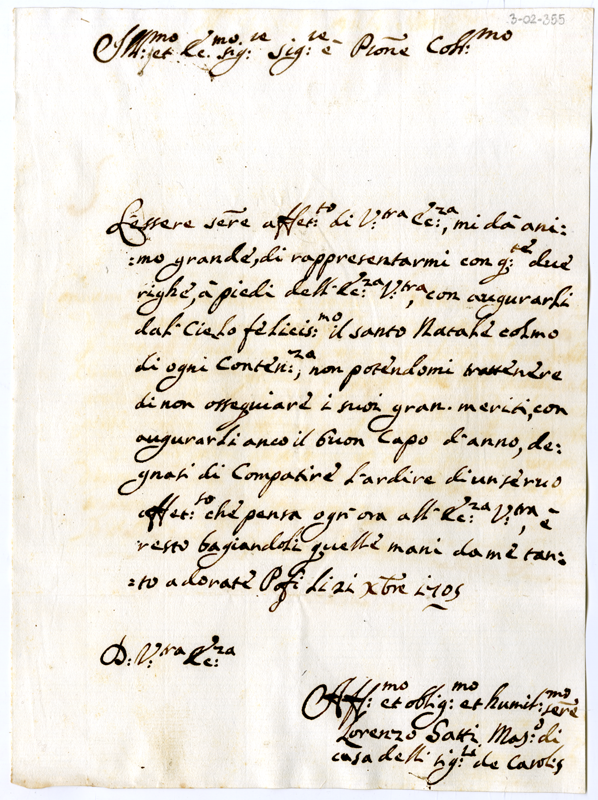 3-02-355
Ill:mo et Ec:mo sig:re sig:re è Pron̄e Col:mo
L'essere serē affet:to di V:tra Ec:za, mi dà ani:
:mo grande, di rappresentarmi con q:te due
righe, à piedi dell'Ec:za V:tra, con augurarli
dal Cielo felicis:mo il santo Natale colmo
di ogni Conten:za, non potendomi trattenere
di non ossequiare i suoi gran meriti, con
augurarli anco il buon Capo d'anno, de:
gnasi di Compatire l'ardire di un servo
affet:to che pensa ogn'ora all'Ec:za V:tra, è
resto bagiandoli quelle mani da me tan:
:to adorate Pofi li 21 xbre 1705
D: V:tra Ec:za
Aff:mo et oblig:mo et humil:mo serē
Lorenzo Satti Mas:o di
casa delli sig:ri de Carolis